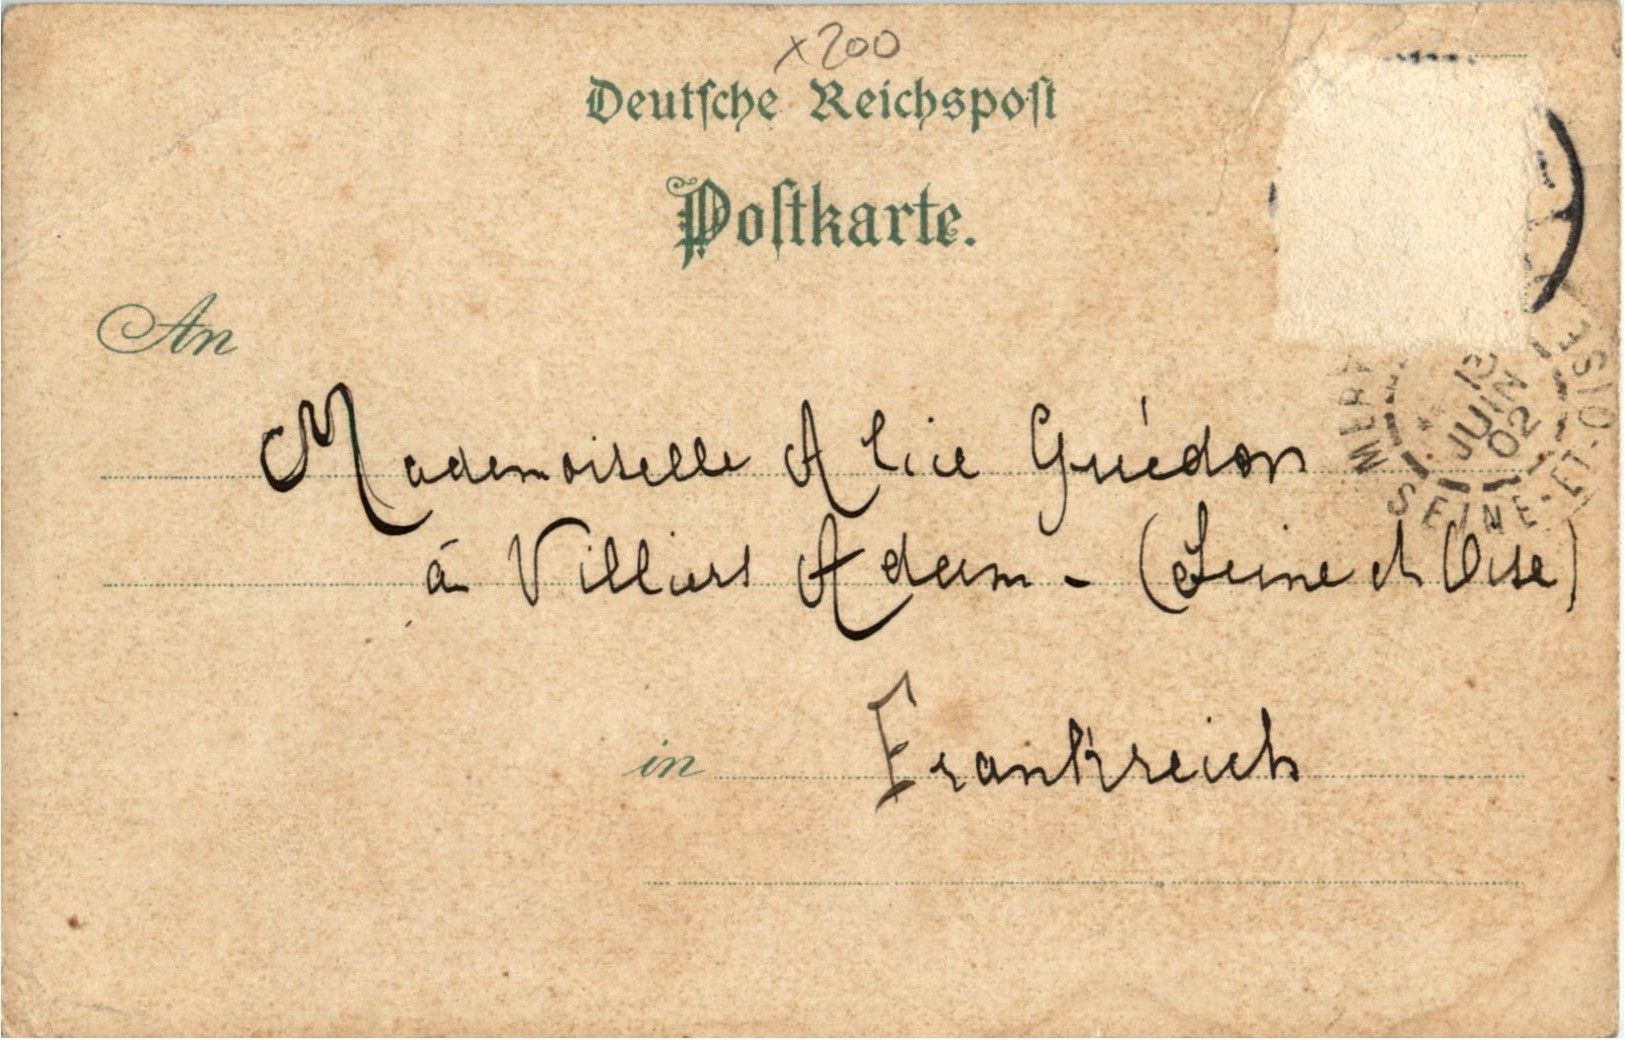 x200
Deutsche Reichspost
Postkarte.
An
Mademoiselle Alice Guédon
à Villiers Adam - (Seine et Oise)
in Frankreich
MERY
SEINE-ET-OISE
13
JUIN
02